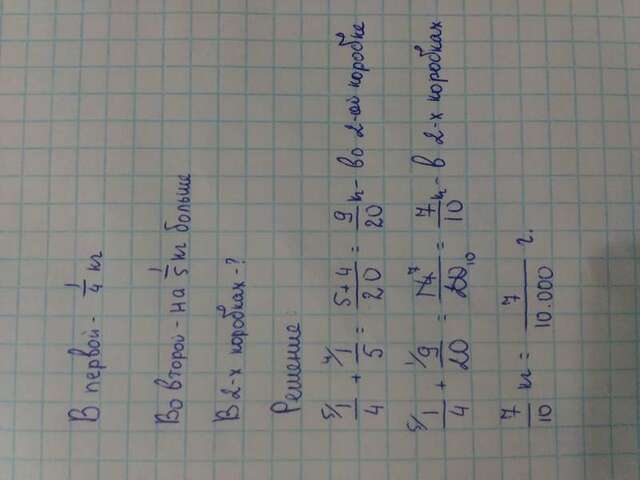 В первой - 1/4 кг
Во второй - на 1/5 кг больше
В 2-х коробках - ?
Решение:
5/ 1/4 + 4/ 1/5 = 5+4/20 = 9/20 к - во 2-ой коробке
5/ 1/4 + 1/ 9/20 = 14 7/20 10 = 7/10 к - в 2-х коробках
7/10 кг = 7/10.000 г.